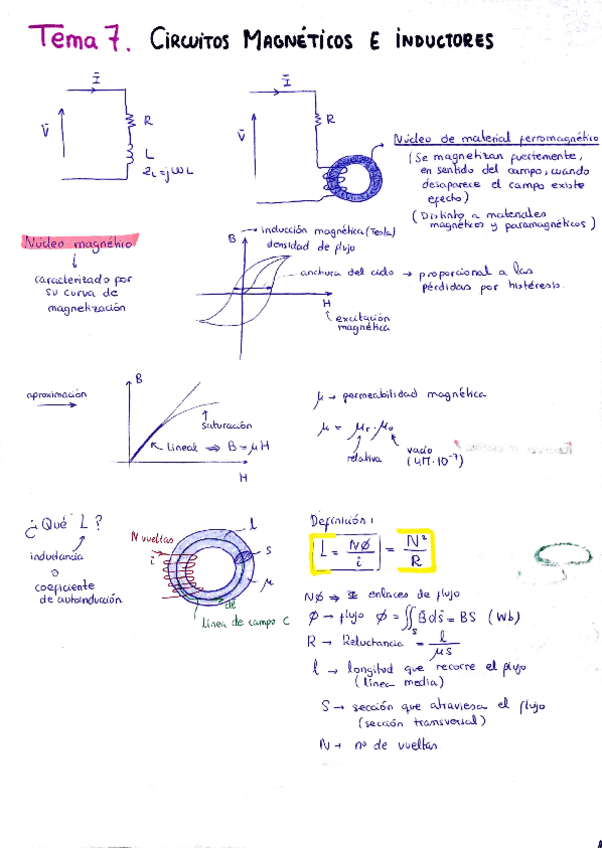 Tema 7. CIRCUITOS MAGNÉTICOS E INDUCTORES
Ī
V̄
R
L
Z_L=jωL
Ī
V̄
R
Núcleo de material ferromagnético
(Se magnetizan fuertemente,
en sentido del campo, cuando
desaparece el campo existe
efecto)
(Distinto a materiales
magnéticos y paramagnéticos)
Núcleo magnético
↓
caracterizado por
su curva de
magnetización
B → inducción magnética (Tesla)
densidad de flujo
anchura del ciclo → proporcional a las
pérdidas por histéresis.
H
↑ excitación
magnética
aproximación
B
saturación
Lineal ⇒ B=μH
H
μ → permeabilidad magnética
μ = μr·μ0
relativa
vacío
(4π·10⁻⁷)
¿Qué L?
inductancia
o
coeficiente
de autoinducción
N vueltas
i
l
S
μ
dl
Línea de campo C
Definición:
L = NΦ/i = N²/R
NΦ ⇒ enlaces de flujo
Φ → flujo Φ = ∬s B̄ds̄ = BS (Wb)
R → Reluctancia = l/μS
l → longitud que recorre el flujo
(línea media)
S → sección que atraviesa el flujo
(sección transversal)
N → nº de vueltas